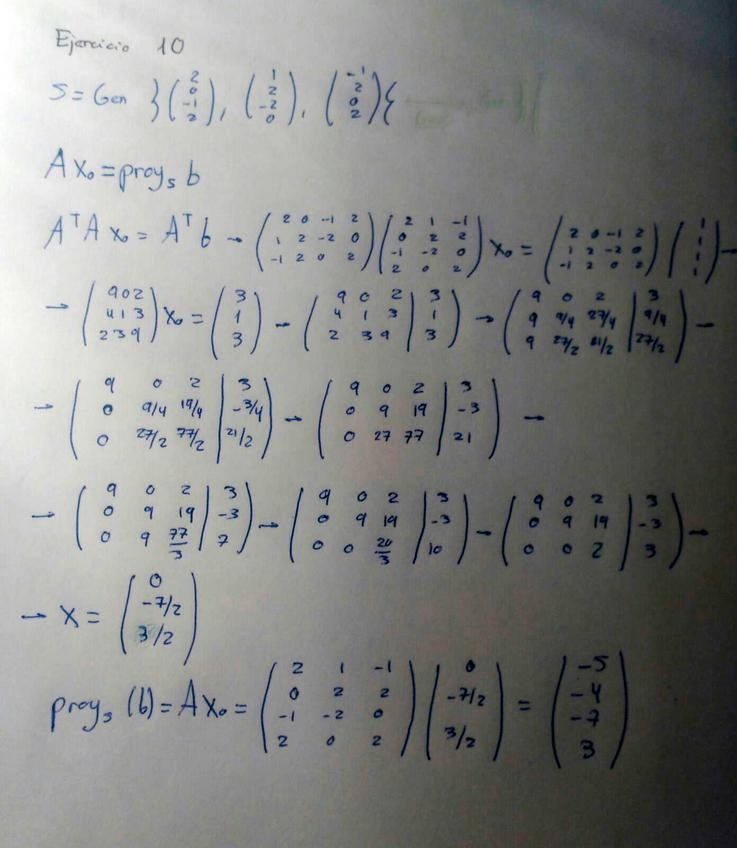 Ejercicio 10
S = Gen }(2 0 -1 2), (1 2 -2 0), (-1 2 0 2){
A x₀ = proyₛ b
AᵀA x₀ = Aᵀb → (2 0 -1 2 / 1 2 -2 0 / -1 2 0 2) (2 1 -1 / 0 2 2 / -1 -2 0 / 2 0 2) x₀ = (2 0 -1 2 / 1 2 -2 0 / -1 2 0 2) (1 1 1 1) →
→ (9 0 2 / 4 1 3 / 2 3 9) x₀ = (3 1 3) → (9 0 2 | 3 / 4 1 3 | 1 / 2 3 9 | 3) → (9 0 2 | 3 / 9 9/4 27/4 | 9/4 / 9 27/2 81/2 | 27/2) →
→ (9 0 2 | 3 / 0 9/4 19/4 | -3/4 / 0 27/2 77/2 | 21/2) → (9 0 2 | 3 / 0 9 19 | -3 / 0 27 77 | 21) →
→ (9 0 2 | 3 / 0 9 19 | -3 / 0 9 77/3 | 7) → (9 0 2 | 3 / 0 9 19 | -3 / 0 0 20/3 | 10) → (9 0 2 | 3 / 0 9 19 | -3 / 0 0 2 | 3) →
→ X = (0 -7/2 3/2)
proyₛ (b) = A x₀ = (2 1 -1 / 0 2 2 / -1 -2 0 / 2 0 2) (0 -7/2 3/2) = (-5 -4 -7 3)